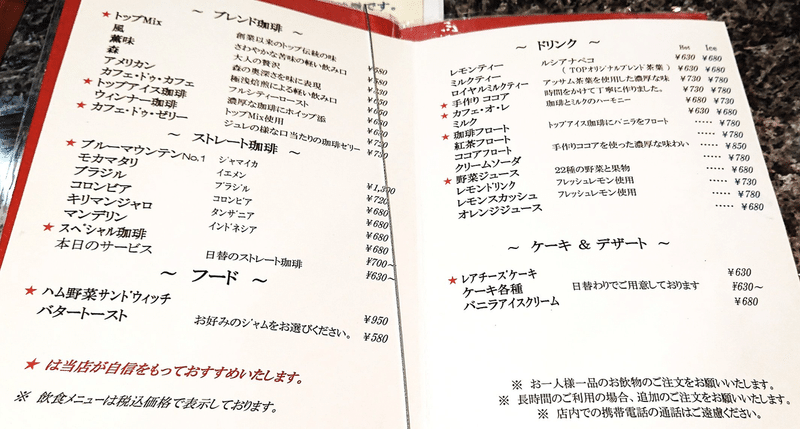 です。
～ ブレンド珈琲 ～
★ トップMix 創業以来のトップ伝統の味 ¥680
風 さわやかな苦味の軽い飲み口 ¥680
薫味 大人の贅沢
森 森の奥深さを味に表現 ¥650
アメリカン 極浅焙煎による軽い飲み口 ¥650
カフェ・ドゥ・カフェ フルシティーロースト
★ トップアイス珈琲 濃厚な珈琲にホイップ添 ¥680
ウィンナー珈琲 トップMix使用 ¥720
★ カフェ・ドゥ・ゼリー ジュレの様な口当たりの珈琲ゼリー ¥730
～ ストレート珈琲 ～
★ ブルーマウンテンNo.1 ジャマイカ ¥1,300
モカマタリ イエメン ¥720
ブラジル ブラジル ¥680
コロンビア コロンビア ¥680
キリマンジャロ タンザニア ¥680
マンデリン インドネシア ¥680
★ スペシャル珈琲 ¥700～
本日のサービス 日替のストレート珈琲 ¥630～
～ フード ～
★ ハム野菜サンドウィッチ ¥950
バタートースト お好みのジャムをお選びください。 ¥580
★ は当店が自信をもっておすすめいたします。
※ 飲食メニューは税込価格で表示しております。
～ ドリンク ～
Hot Ice
レモンティー ルシアナペコ ¥630 ¥680
ミルクティー ( TOPオリジナルブレンド茶葉 ) ¥630 ¥680
ロイヤルミルクティー アッサム茶葉を使用した濃厚な味 ¥730 ¥780
★ 手作り ココア 時間をかけて丁寧に作りました。 ¥730 ¥780
★ カフェ・オ・レ 珈琲とミルクのハーモニー ¥680 ¥730
ミルク ¥630 ¥680
★ 珈琲フロート トップアイス珈琲にバニラをフロート ····· ¥780
紅茶フロート ····· ¥780
ココアフロート 手作りココアを使った濃厚な味わい ····· ¥850
クリームソーダ ····· ¥780
★ 野菜ジュース 22種の野菜と果物 ····· ¥680
レモンドリンク フレッシュレモン使用 ····· ¥730
レモンスカッシュ フレッシュレモン使用 ····· ¥780
オレンジジュース ····· ¥680
～ ケーキ & デザート ～
★ レアチーズケーキ ¥630
ケーキ各種 日替わりでご用意しております ¥630～
バニラアイスクリーム ¥680
※ お一人様一品のお飲物のご注文をお願いいたします。
※ 長時間のご利用の場合、追加のご注文をお願いいたします。
※ 店内での携帯電話の通話はご遠慮ください。